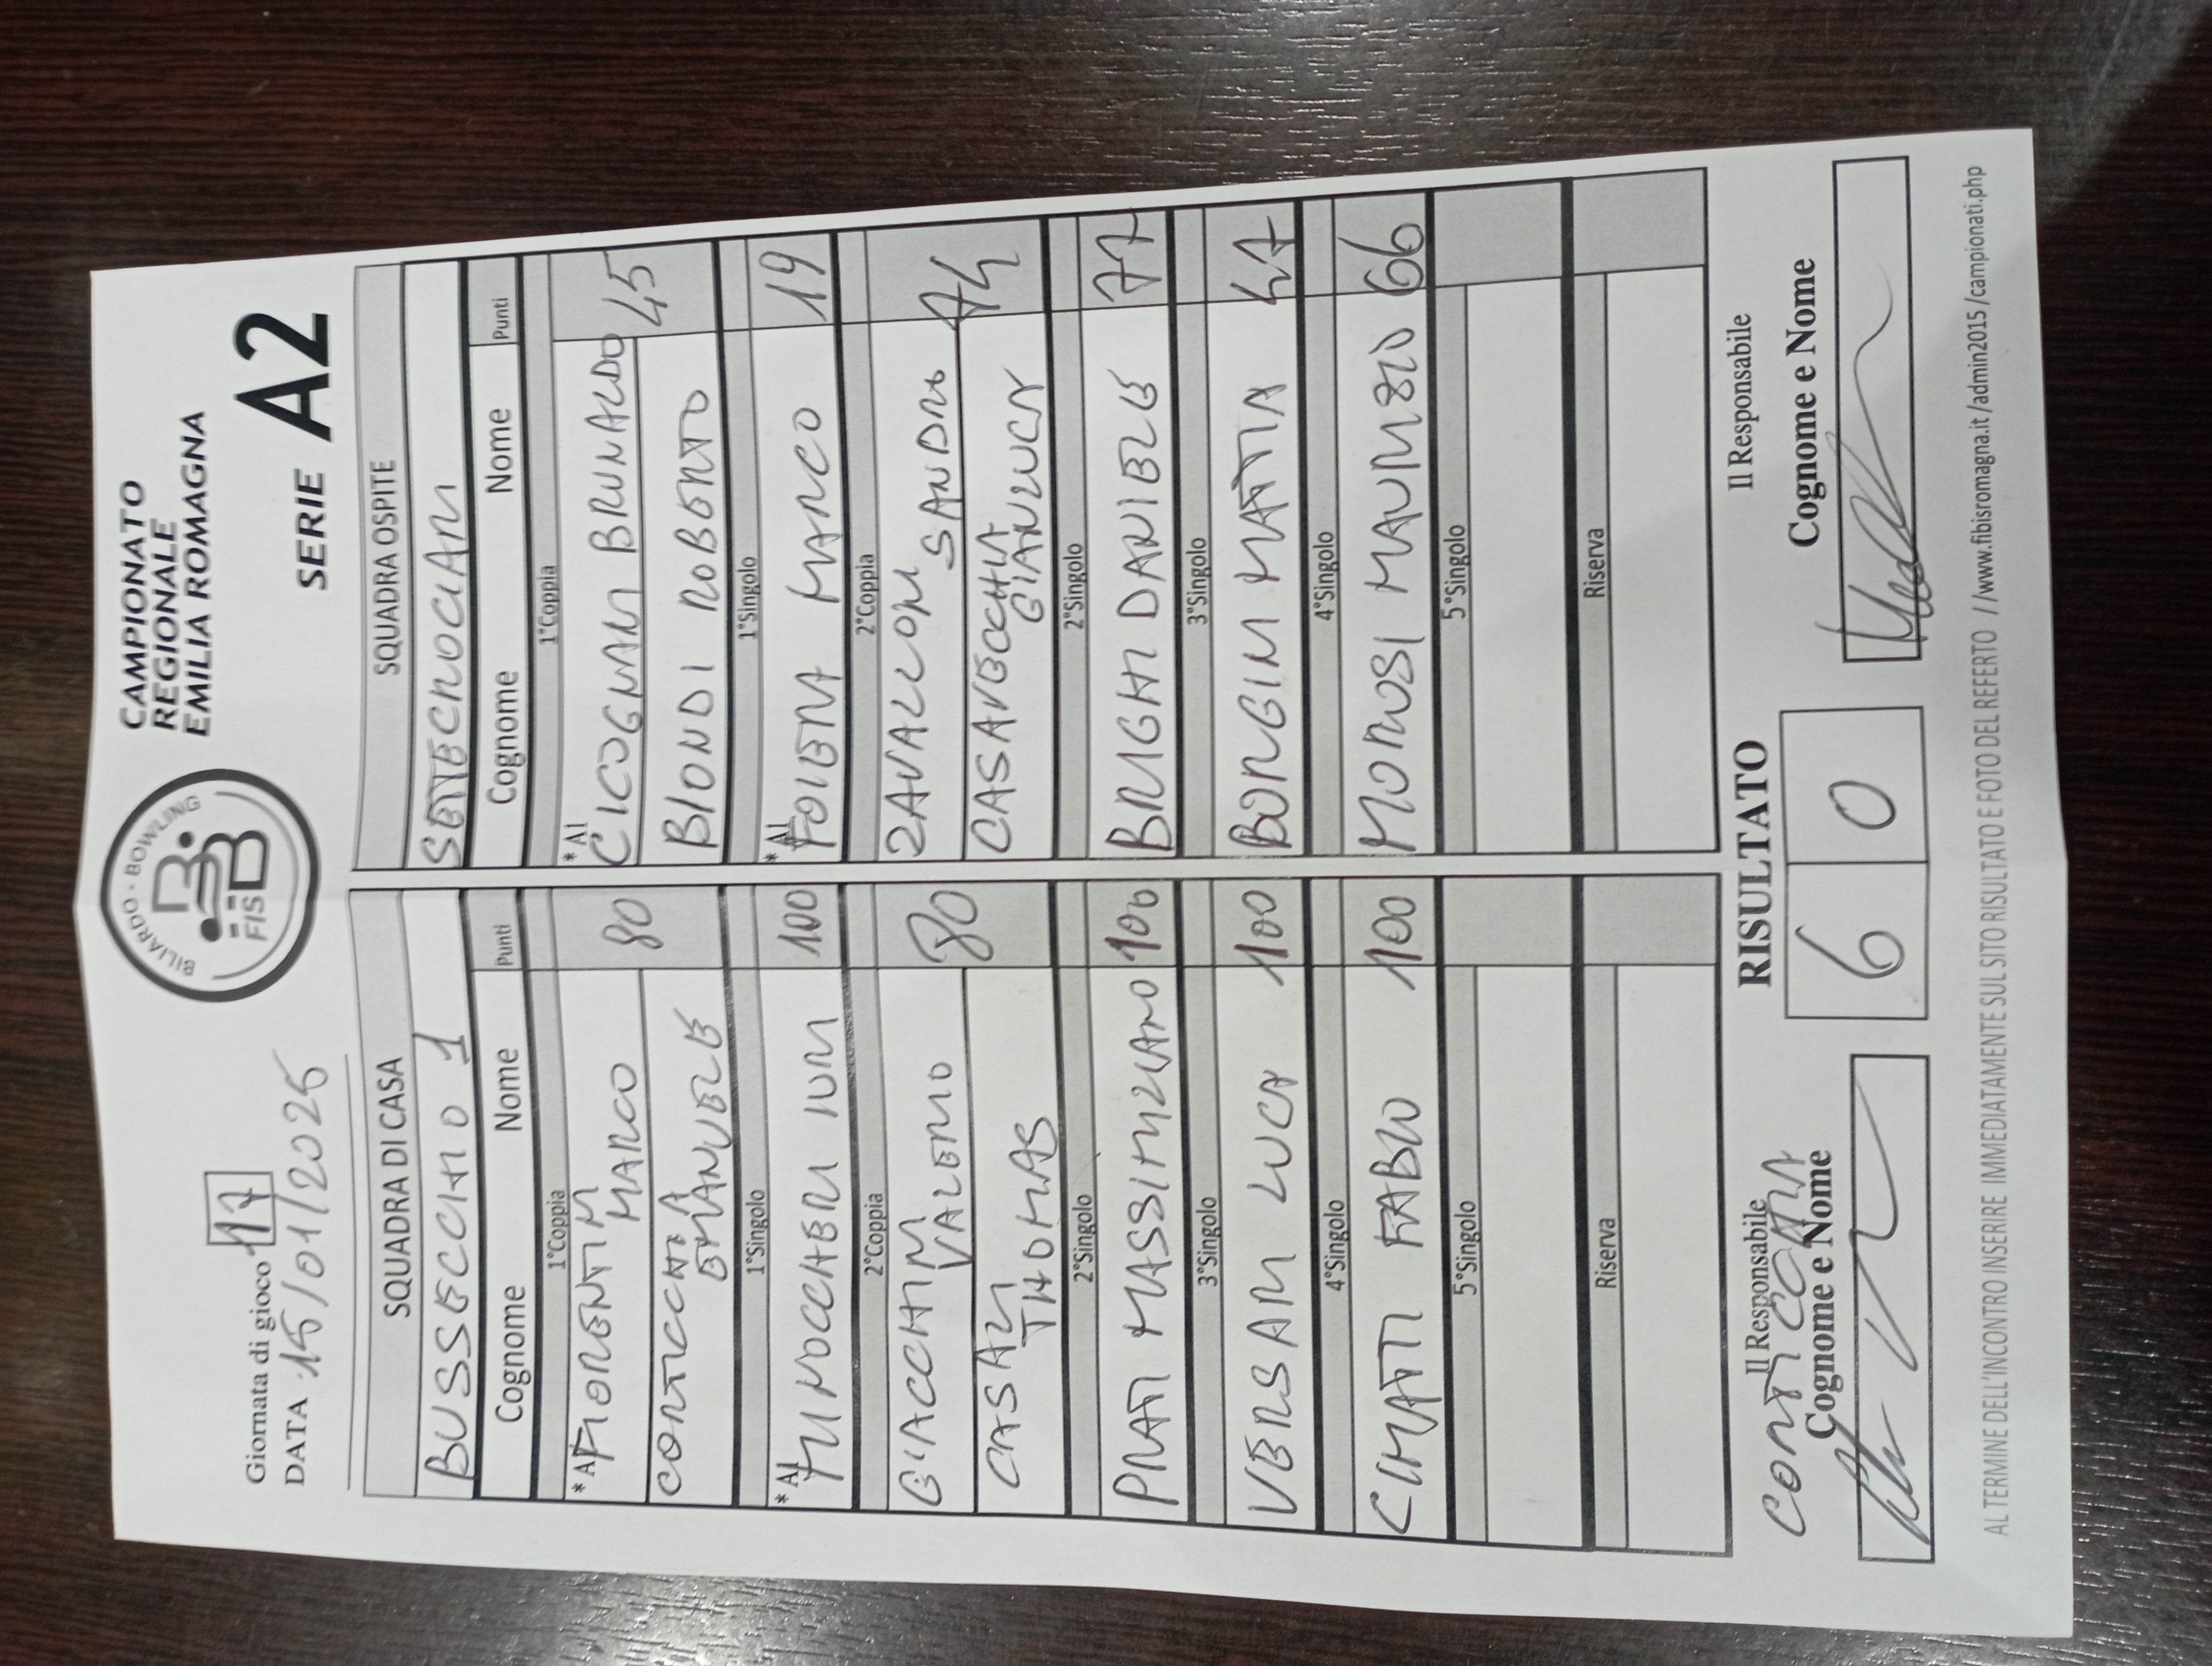 Giornata di gioco 17
DATA 15/01/2025
BILIARDO · BOWLING
FISBB
CAMPIONATO
REGIONALE
EMILIA ROMAGNA
SERIE A2
SQUADRA DI CASA
BUSSECCHIO 1
Cognome Nome Punti
1°Coppia
*A1 FIORENTINI MARCO 80
CORTICCHIA EMANUELE
1°Singolo
*A1 MINOCCHERI IURI 100
2°Coppia
GIACCHINI VALERIO 80
CASALI THOMAS
2°Singolo
PRATI MASSIMILIANO 100
3°Singolo
VERSARI LUCA 100
4°Singolo
CIMATTI FABIO 100
5°Singolo
Riserva
SQUADRA OSPITE
SETTECROCIARI
Cognome Nome Punti
1°Coppia
*A1 CICOGNANI BRUNALDO 45
BIONDI ROBERTO
1°Singolo
*A1 FOIERA MARCO 19
2°Coppia
ZAVALLONI SANDRO 74
CASAVECCHIA GIANLUCA
2°Singolo
BRIGHI DANIELE 77
3°Singolo
BORGINI MATTIA 47
4°Singolo
MOROSI MAURIZIO 66
5°Singolo
Riserva
Il Responsabile
CONTI CATIA
Cognome e Nome
RISULTATO
6 0
Il Responsabile
Cognome e Nome
AL TERMINE DELL'INCONTRO INSERIRE IMMEDIATAMENTE SUL SITO RISULTATO E FOTO DEL REFERTO //www.fibisromagna.it/admin2015/campionati.php